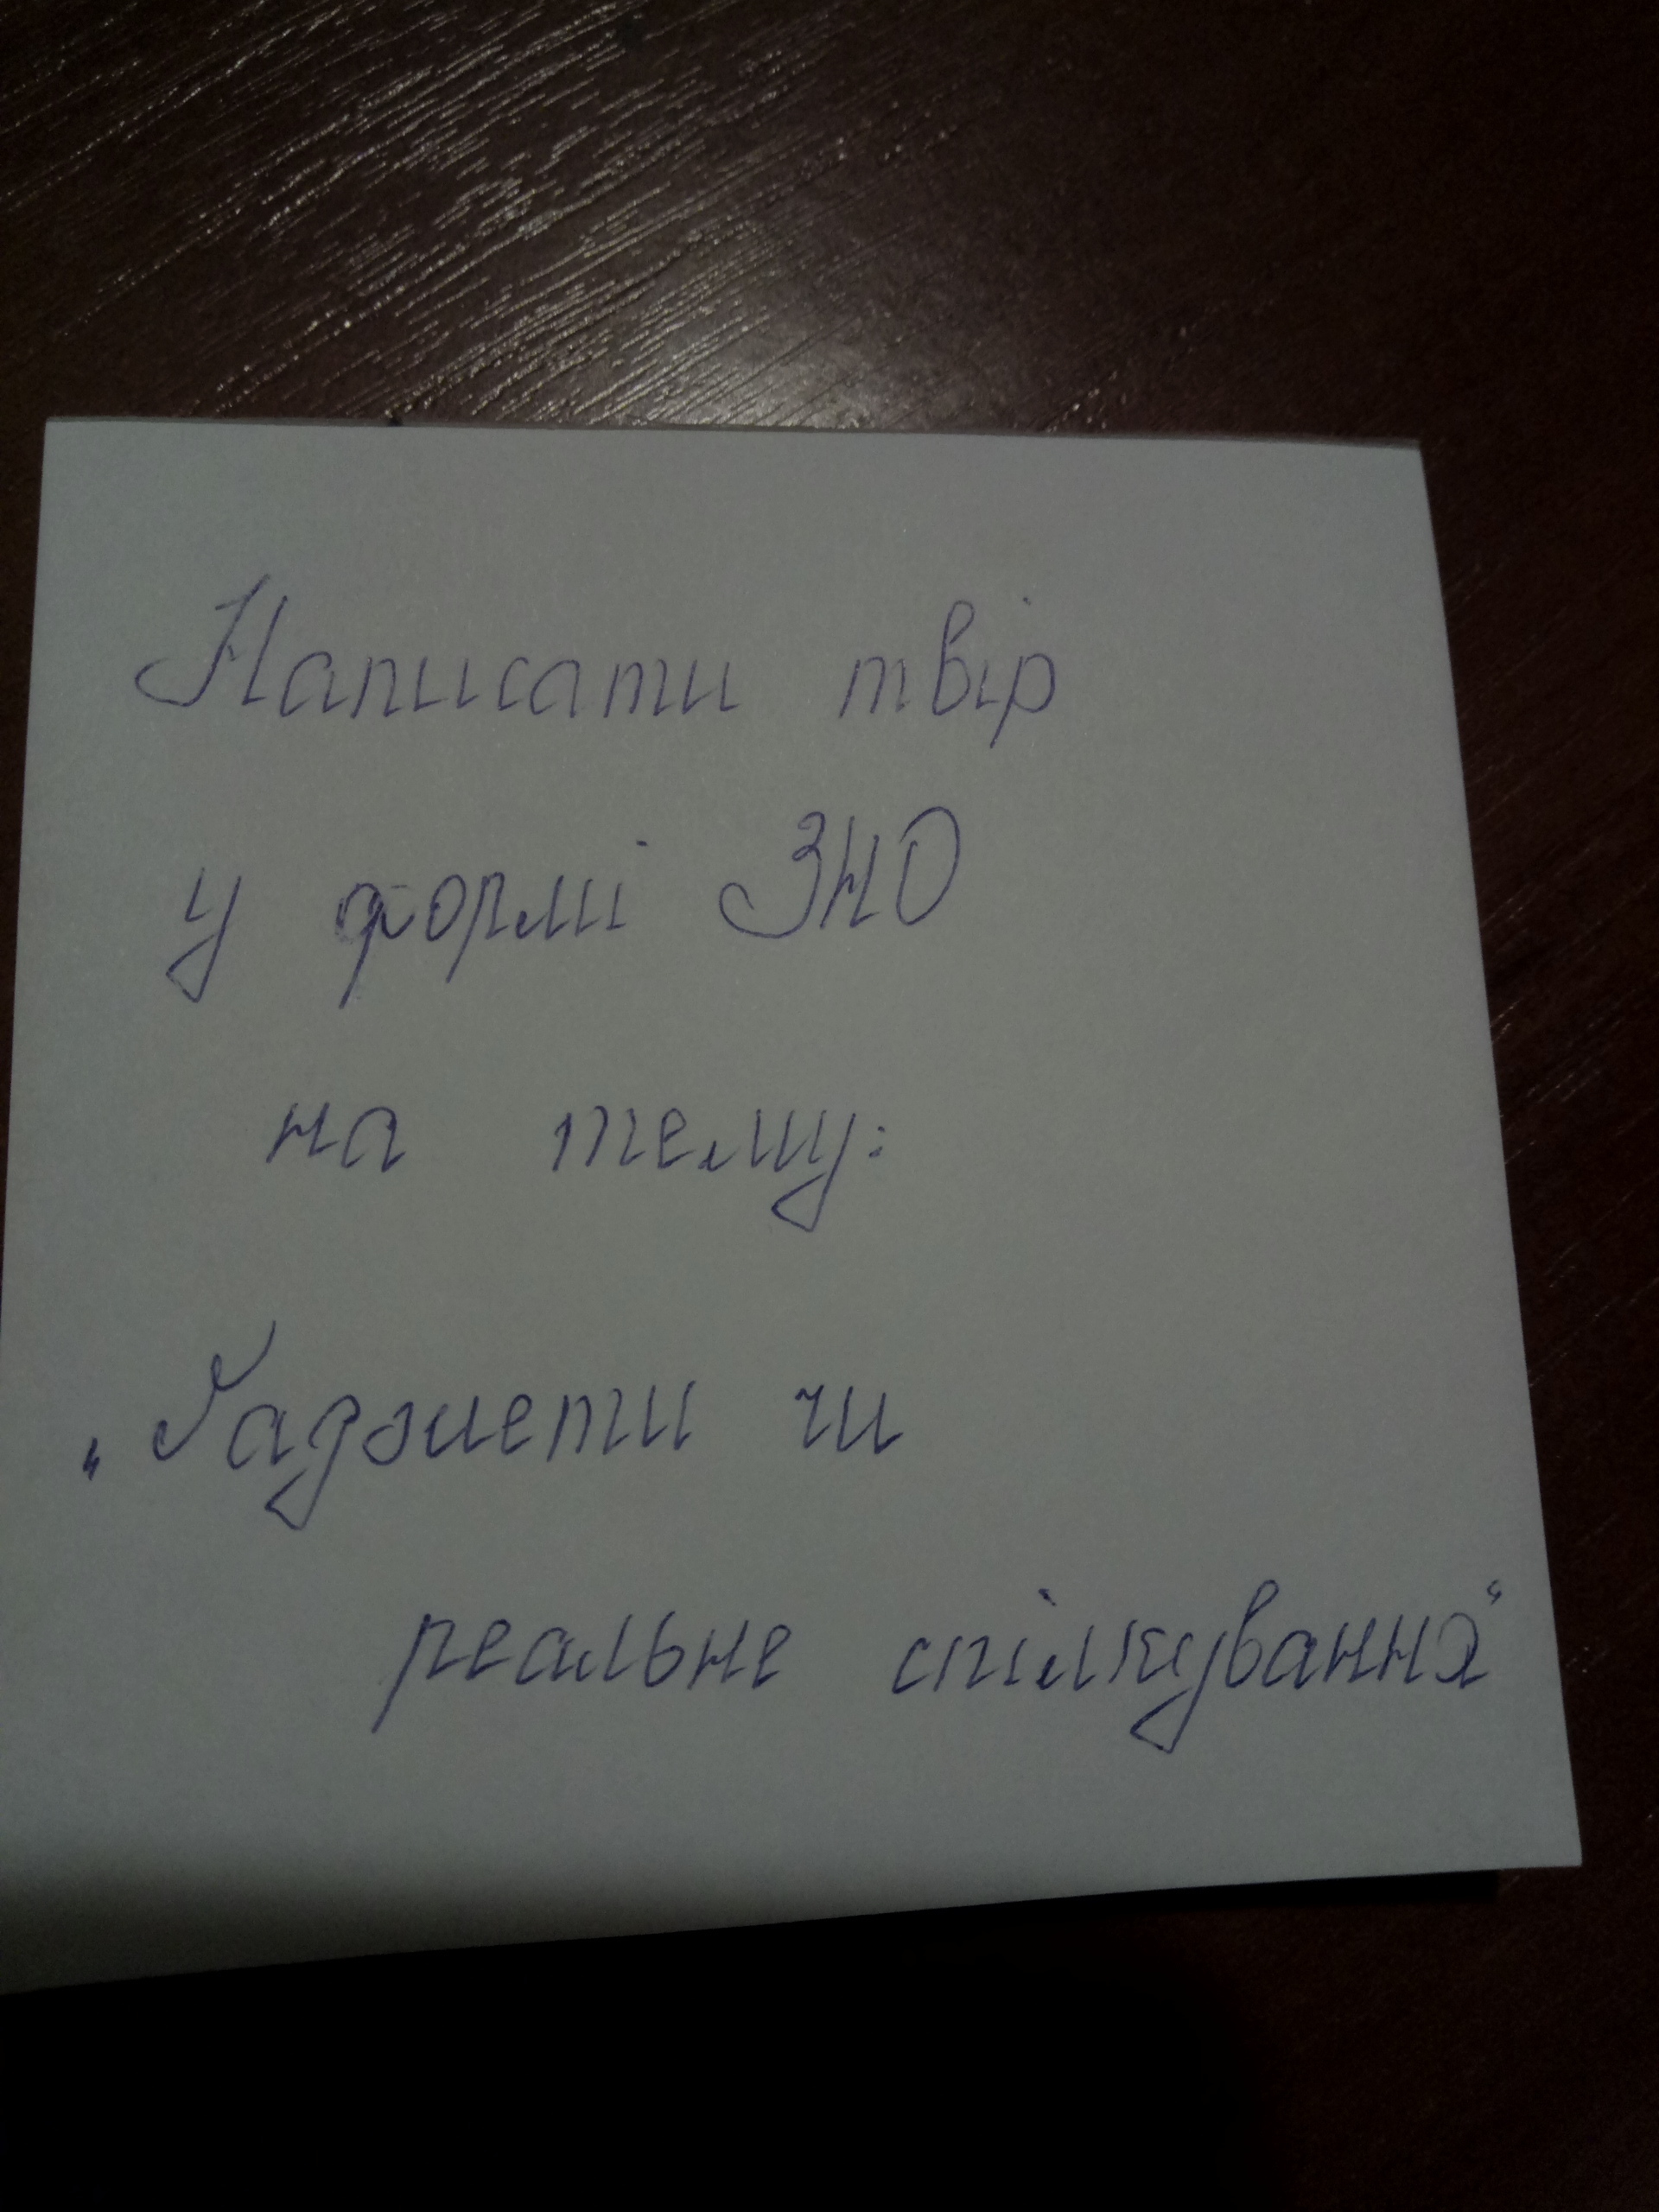 Написати твір
у формі ЗНО
на тему:
„Ґаджети чи
реальне спілкування“